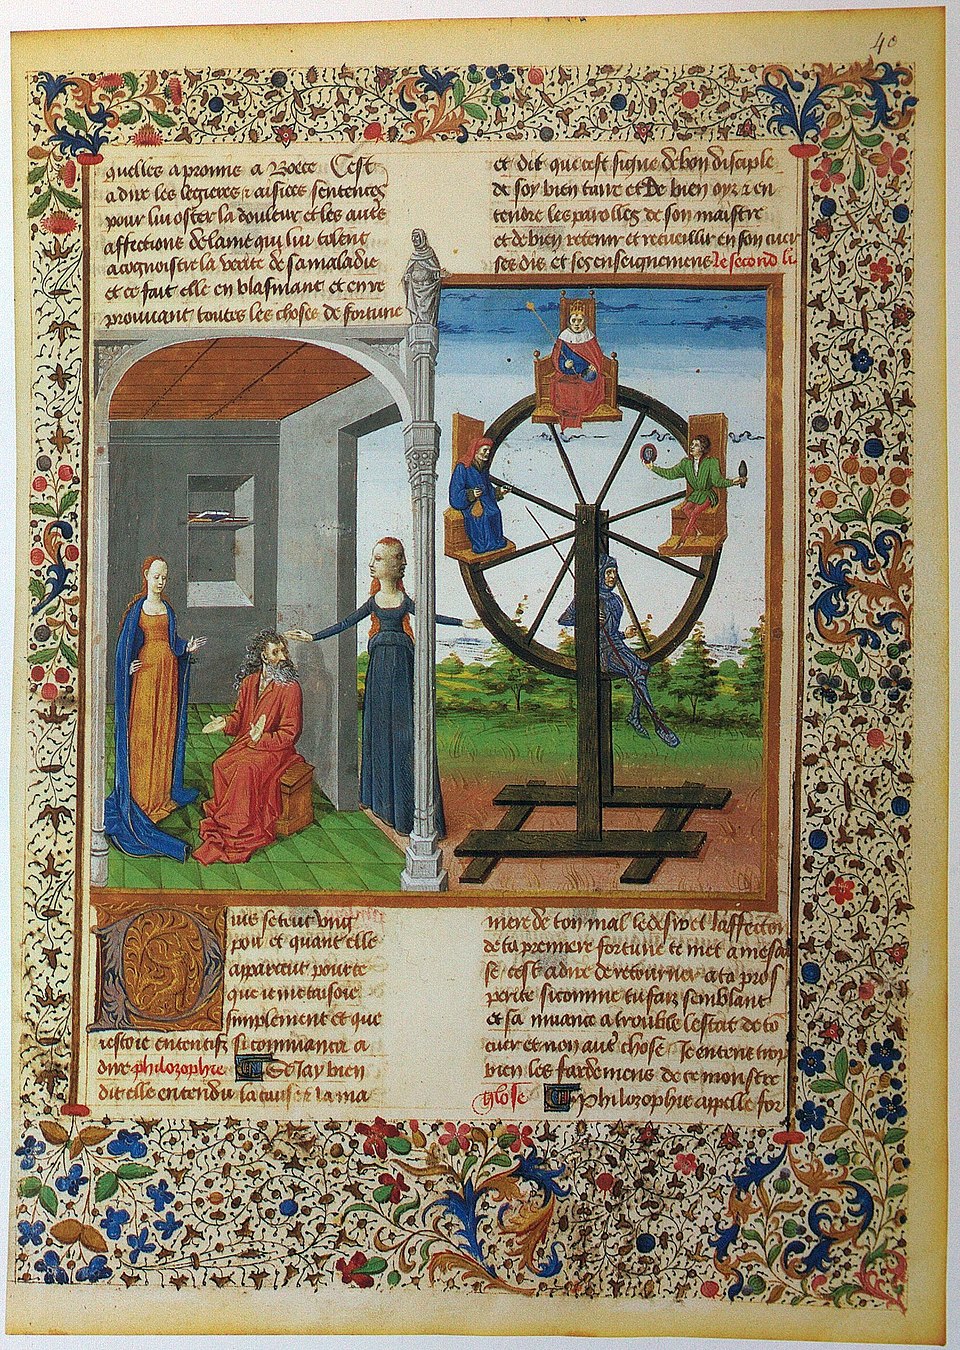 40
quelles a promie a Boece Cest
a dire les legieres & aisiees sentences
pour lui oster la douleur et les autes
affections de lame qui lui tolent
a cognoistre la verite de sa maladie
et ce fait elle en blasmant et en re
prouvant toutes les choses de fortune
et dit que cest signe de bon disciple
de soy bien taire et de bien oyr & en
tendre les parolles de son maistre
et de bien retenir et recueillir en son cuer
ses dis et ses enseignemens le second li
uis se teut ung
pou et quant elle
apparceut pource
que ie me taisoie
simplement et que
iestoie ententif si commanca a
dire philozophie Se Jay bien
dit elle entendu la cause & la ma
niere de ton mal le desir et laffection
de ta premiere fortune te met a mesai
se cest a dire de retourner a ta pros
perite si comme tu faiz semblant
et sa muance a trouble lestat de to
cuer et non aut chose Je entens trop
bien les fardemens de ce monstre
Glose Philozophie appelle for